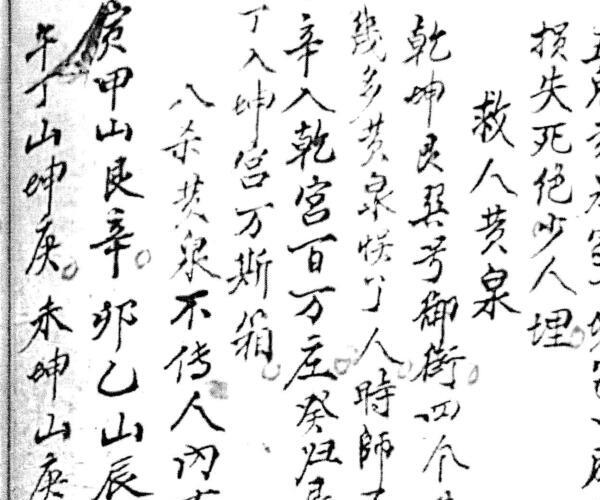 损失死绝少人埋
救人黄泉
乾坤艮巽号御街四个
几多黄泉悮了人時師
辛入乾宮百万庄癸归艮
丁入坤宮万斯箱
八杀黄泉不傳人内
寅甲山艮辛卯乙山辰
午丁山坤庚未坤山庚